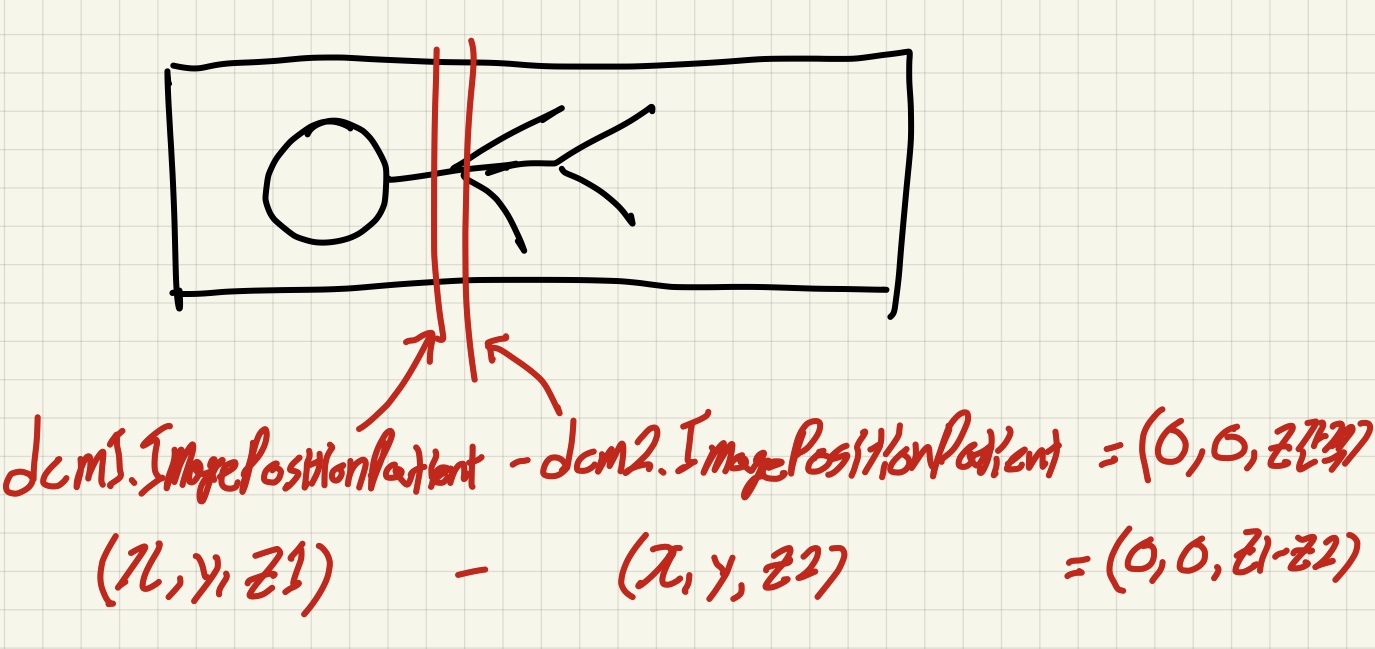 dcm1.ImagePositionPatient - dcm2.ImagePositionPatient = (0, 0, z
(x, y, z1) - (x, y, z2) = (0, 0, z1-z2)